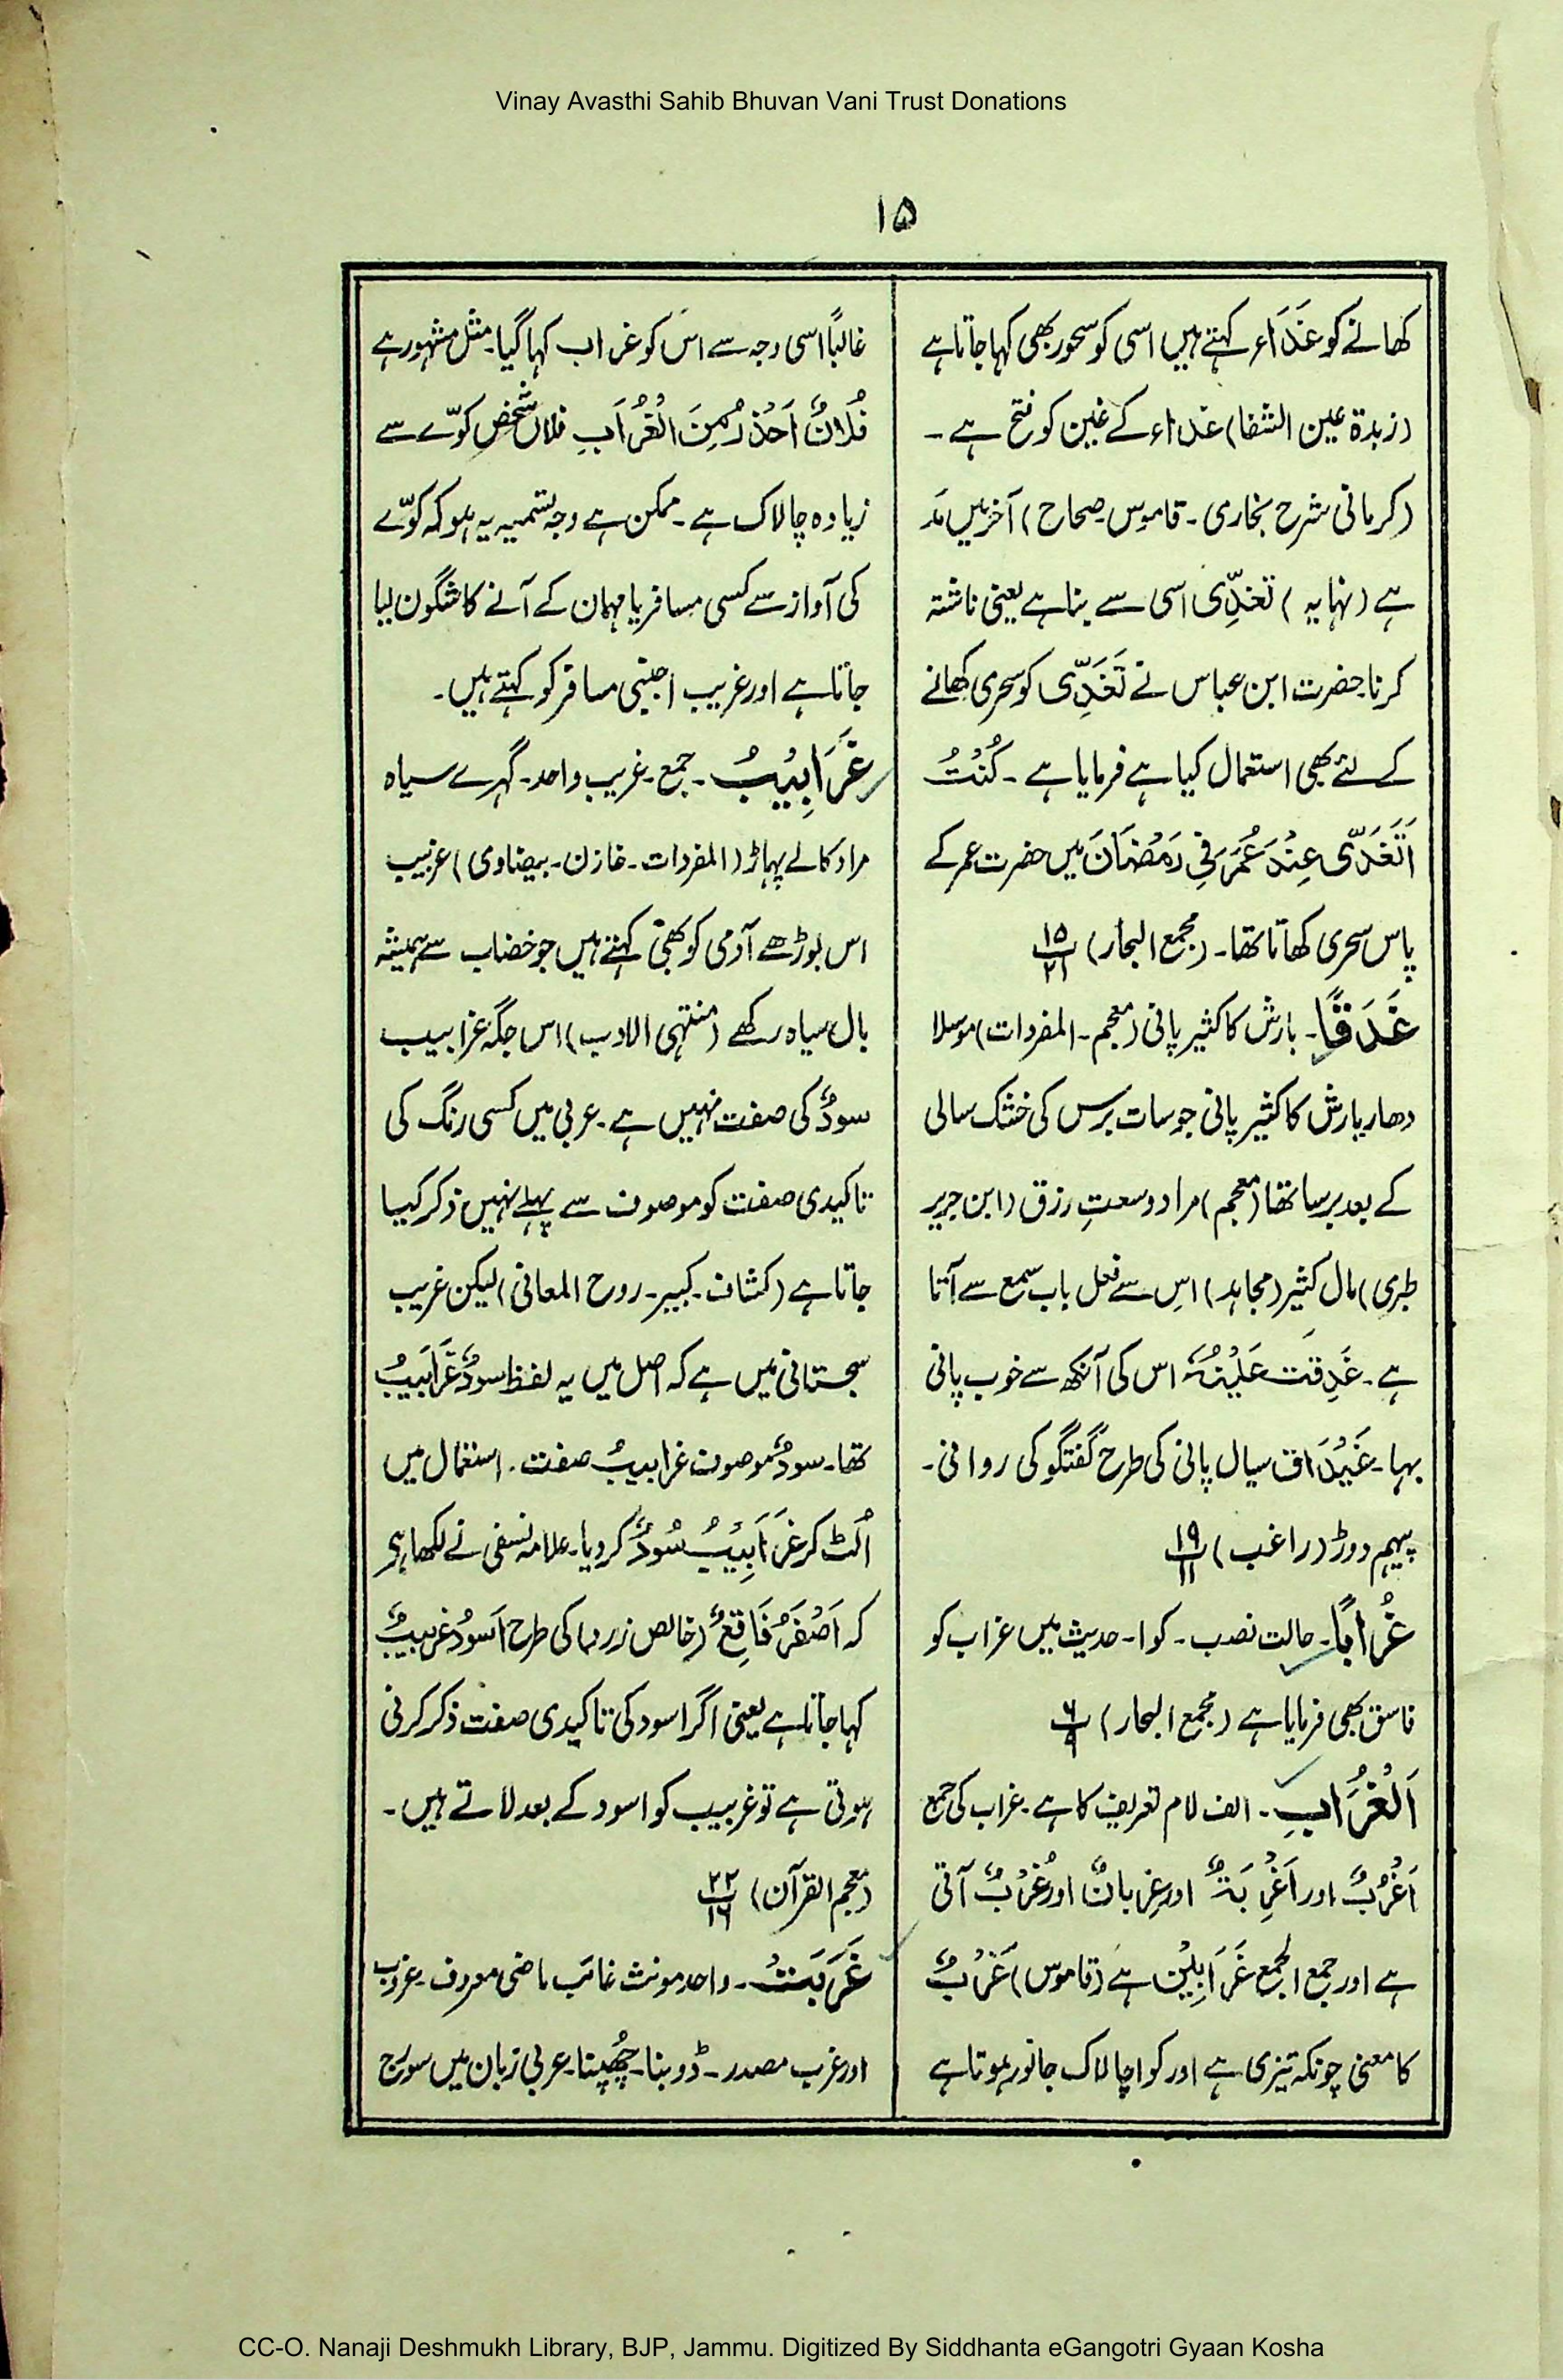 Vinay Avasthi Sahib Bhuvan Vani Trust Donations
۱۵
کھانے کو غَدَاء کہتے ہیں اسی کو سحور بھی کہا جاتا ہے
(زبدۃ عین الشفا) غداء کے غین کو فتح ہے ۔
(کرمانی شرح بخاری ۔ قاموس ۔ صحاح) آخر میں مَد
ہے (نہایہ) تَغَدِّی اسی سے بنا ہے یعنی ناشتہ
کرنا۔ حضرت ابن عباس نے تَغَدِّی کو سحری کھانے
کے لئے بھی استعمال کیا ہے فرمایا ہے ۔ کُنْتُ
اَتَغَدّٰی عِنْدَ عُمَرَ فِی رَمَضَانَ میں حضرت عمر کے
پاس سحری کھاتا تھا۔ (مجمع البحار) ۱۵/۲۱
غَدَقًا۔ بارش کا کثیر پانی (معجم ۔ المفردات) موسلا
دھار بارش کا کثیر پانی جو سات برس کی خشک سالی
کے بعد برسا تھا (معجم) مراد وسعتِ رزق (ابن جریر
طبری) مال کثیر (مجاہد) اس سے فعل باب سمع سے آتا
ہے ۔ غَدِقَتْ عَیْنُہٗ اس کی آنکھ سے خوب پانی
بہا۔ غَیْدَاق سیال پانی کی طرح گفتگو کی روانی ۔
پیہم دوڑ (راغب) ۱۹/۱۱
غُرَابًا۔ حالت نصب ۔ کوا۔ حدیث میں غراب کو
فاسق بھی فرمایا ہے (مجمع البحار) ۶/۹
اَلْغُرَابِ ۔ الف لام تعریف کا ہے ۔ غراب کی جمع
اَغْرُبٌ اور اَغْرِبَۃٌ اور غِربانٌ اور غُرْبٌ آتی
ہے اور جمع الجمع غَرَابِیْن ہے (قاموس) غَرْبٌ
کا معنی چونکہ تیزی ہے اور کوا چالاک جانور ہوتا ہے
غالباً اسی وجہ سے اس کو غراب کہا گیا۔ مثل مشہور ہے
فُلَانٌ اَحْذَرُ مِنَ الْغُرَابِ فلاں شخص کوّے سے
زیادہ چالاک ہے ۔ ممکن ہے وجہ تسمیہ یہ ہو کہ کوّے
کی آواز سے کسی مسافر یا مہمان کے آنے کا شگون لیا
جاتا ہے اور غریب اجنبی مسافر کو کہتے ہیں ۔
غَرَابِیْبُ ۔ جمع ۔ غربیب واحد ۔ گہرے سیاہ
مراد کالے پہاڑ (المفردات ۔ خازن ۔ بیضاوی) غربیب
اس بوڑھے آدمی کو بھی کہتے ہیں جو خضاب سے ہمیشہ
بال سیاہ رکھے (منتہی الادب) اس جگہ غرابیب
سودٌ کی صفت نہیں ہے ۔ عربی میں کسی رنگ کی
تاکیدی صفت کو موصوف سے پہلے نہیں ذکر کیا
جاتا ہے (کشاف ۔ کبیر ۔ روح المعانی) لیکن غریب
سجستانی میں ہے کہ اصل میں یہ لفظ سودٌ غَرَابِیبُ
تھا۔ سودٌ موصوف غرابیبُ صفت ۔ استعمال میں
اُلٹ کر غَرَابِیْبُ سُودٌ کر دیا۔ علامہ نسفی نے لکھا ہے
کہ اَصْفَرُ فَاقِعٌ (خالص زرد) کی طرح اَسودُ غربیبٌ
کہا جاتا ہے یعنی اگر اسود کی تاکیدی صفت ذکر کرنی
ہوتی ہے تو غربیب کو اسود کے بعد لاتے ہیں ۔
(معجم القرآن) ۲۲/۱۶
غَرَبَتْ ۔ واحد مونث غائب ماضی معروف ۔ غروب
اور غرب مصدر ۔ ڈوبنا۔ چُھپنا۔ عربی زبان میں سورج
CC-O. Nanaji Deshmukh Library, BJP, Jammu. Digitized By Siddhanta eGangotri Gyaan Kosha